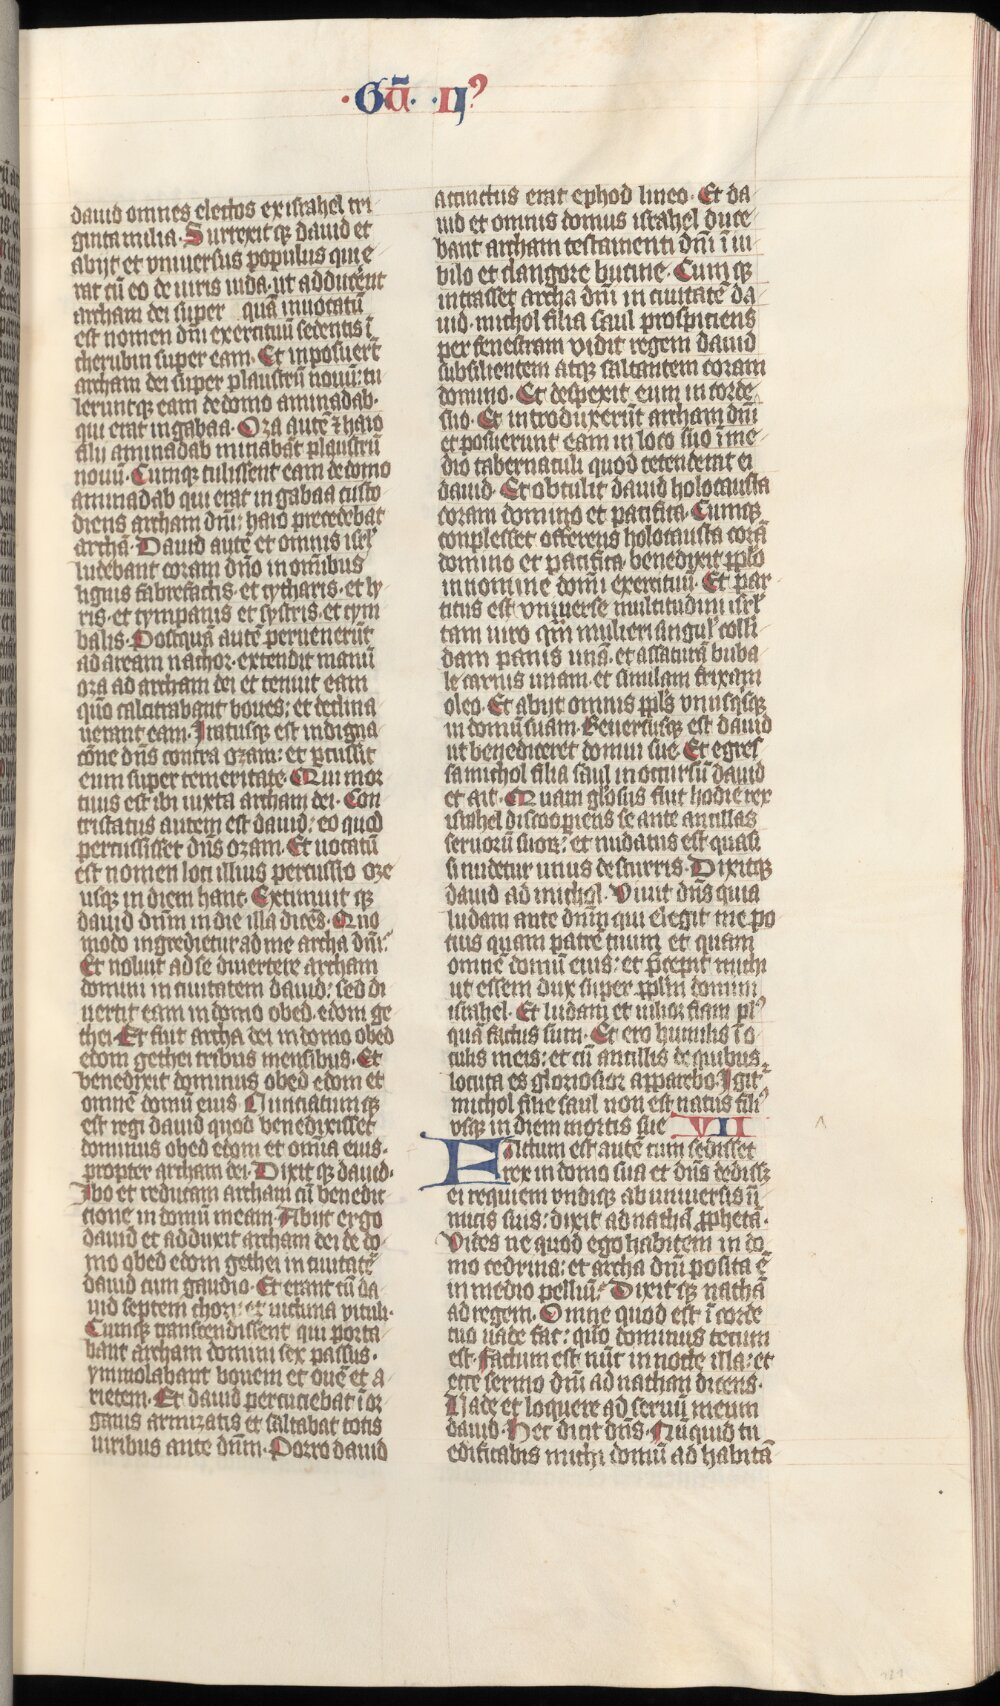 ·Gū· ·II9
dauid omnes electos ex israhel tri
ginta milia· Surrexit q dauid et
abijt et vniuersus populus qui e
rat cū eo de uiris iuda· ut adducer̄nt
archam dei super quā inuocatū
est nomen dn̄i exercituū sedentis ī
cherubin super eam· Et inposuer̄t
archam dei super plaustrū nouū: tu
leruntq eam de domo aminadab·
qui erat in gabaa· Oza autē ⁊ haio
filij aminadab minabāt plaustrū
nouū· Cumq tulissent eam de domo
aminadab qui erat in gabaa custo
diens archam dn̄i: haio precedebat
archā· Dauid autē et omnis isrl
ludebant coram dn̄o in omībus
lignis fabrefactis· et cytharis· et ly
ris· et tympanis et systris· et cym
balis· Postquā autē peruenerūt
ad aream nachor· extendit manū
oza ad archam dei et tenuit eam
quō calcitrabant boues: et declina
uerant eam· Iratusq est indigna
cōne dn̄s contra ozam: et p̄cussit
eum super temeritate· Qui mor
tuus est ibi iuxta archam dei· Con
tristatus autem est dauid: eo quod
percussisset dn̄s ozam· Et uocatū
est nomen loci illius percussio oze
usq in diem hanc· Extimuit q
dauid dn̄m in die illa dicēs· Quo
modo ingredietur ad me archa dn̄i?
Et noluit ad se diuertere archam
domini in ciuitatem dauid: sed di
uertit eam in domo obed· edom ge
thei· Et fuit archa dei in domo obed
edom gethei tribus mensibus· Et
benedixit dominus obed edom et
omnē domū eius· Nunciatumq
est regi dauid quod benedixisset
dominus obed edom et omīa eius·
propter archam dei· Dixit q dauid·
Ibo et reducam archam cū benedic
cione in domū meam· Abijt ergo
dauid et adduxit archam dei de do
mo obed edom gethei in ciuitatē
dauid cum gaudio· Et erant cū da
uid septem chori: et uictima vituli·
Cumq transcendissent qui porta
bant archam domini sex passus·
ymmolabant bouem et ouē et a
rietem· Et dauid percuciebat ī or
ganis armizatis et saltabat totis
uiribus ante dn̄m· Porro dauid
accinctus erat ephod lineo· Et da
uid et omnis domus israhel duce
bant archam testamenti dn̄i ī iu
bilo et clangore bucine· Cum q
intrasset archa dn̄i in ciuitatē da
uid· michol filia saul prospiciens
per fenestram vidit regem dauid
subsilientem atq saltantem coram
domino· Et despexit eum in corde
suo· Et introduxerūt archam dn̄i
et posuerunt eam in loco suo ī me
dio tabernaculi quod tetenderat ei
dauid· Et obtulit dauid holocausta
coram domino et pacifica· Cumq
conplesset offerens holocausta corā
domino et pacifica· benedixit pplō
in nomine domī exercituū· Et par
titus est vniuerse multitudini isrl
tam uiro qm̄ mulieri singul colli
dam panis unā· et assaturā buba
le carnis unam· et similam frixam
oleo· Et abijt omnis ppls vnusqsq
in domū suam· Reuersusq est dauid
ut benediceret domui sue· Et egres
sa michol filia saul in occursū dauid
et ait· Quam glosus fuit hodie rex
israhel discoopiens se ante ancillas
seruorū suor: et nudatus est quasi
si nudetur unus de scurris· Dixitq
dauid ad michol· Viuit dn̄s quia
ludam ante dn̄m qui elegit me po
cius quam patrē tuum et quam
omnē domū eius: et p̄cepit michi
ut essem dux super pplm domini
israhel· Et ludam et uilior fiam pl9
quā factus sum· Et ero humilis ī o
culis meis: et cū ancillis de quibus
locuta es gloriosior apparebo· Igit
michol filie saul non est natus fili9
vsq in diem mortis sue VII
Factum est autē cum sedisset
rex in domo sua et dn̄s dedissz
ei requiem vndiq ab uniuersis ī
micis suis: dixit ad nathā pphetā·
Vides ne quod ego habitem in do
mo cedrina: et archa dn̄i posita ē
in medio pelliū? Dixit q nathā
ad regem· Omne quod est ī corde
tuo uade fac: quō dominus tecum
est· Factum est nūt in nocte illa: et
ecce sermo dn̄i ad nathan dicens·
Uade et loquere ad seruū meum
dauid· Hec dicit dn̄s· Nūquid tu
edificabis michi domū ad habitā